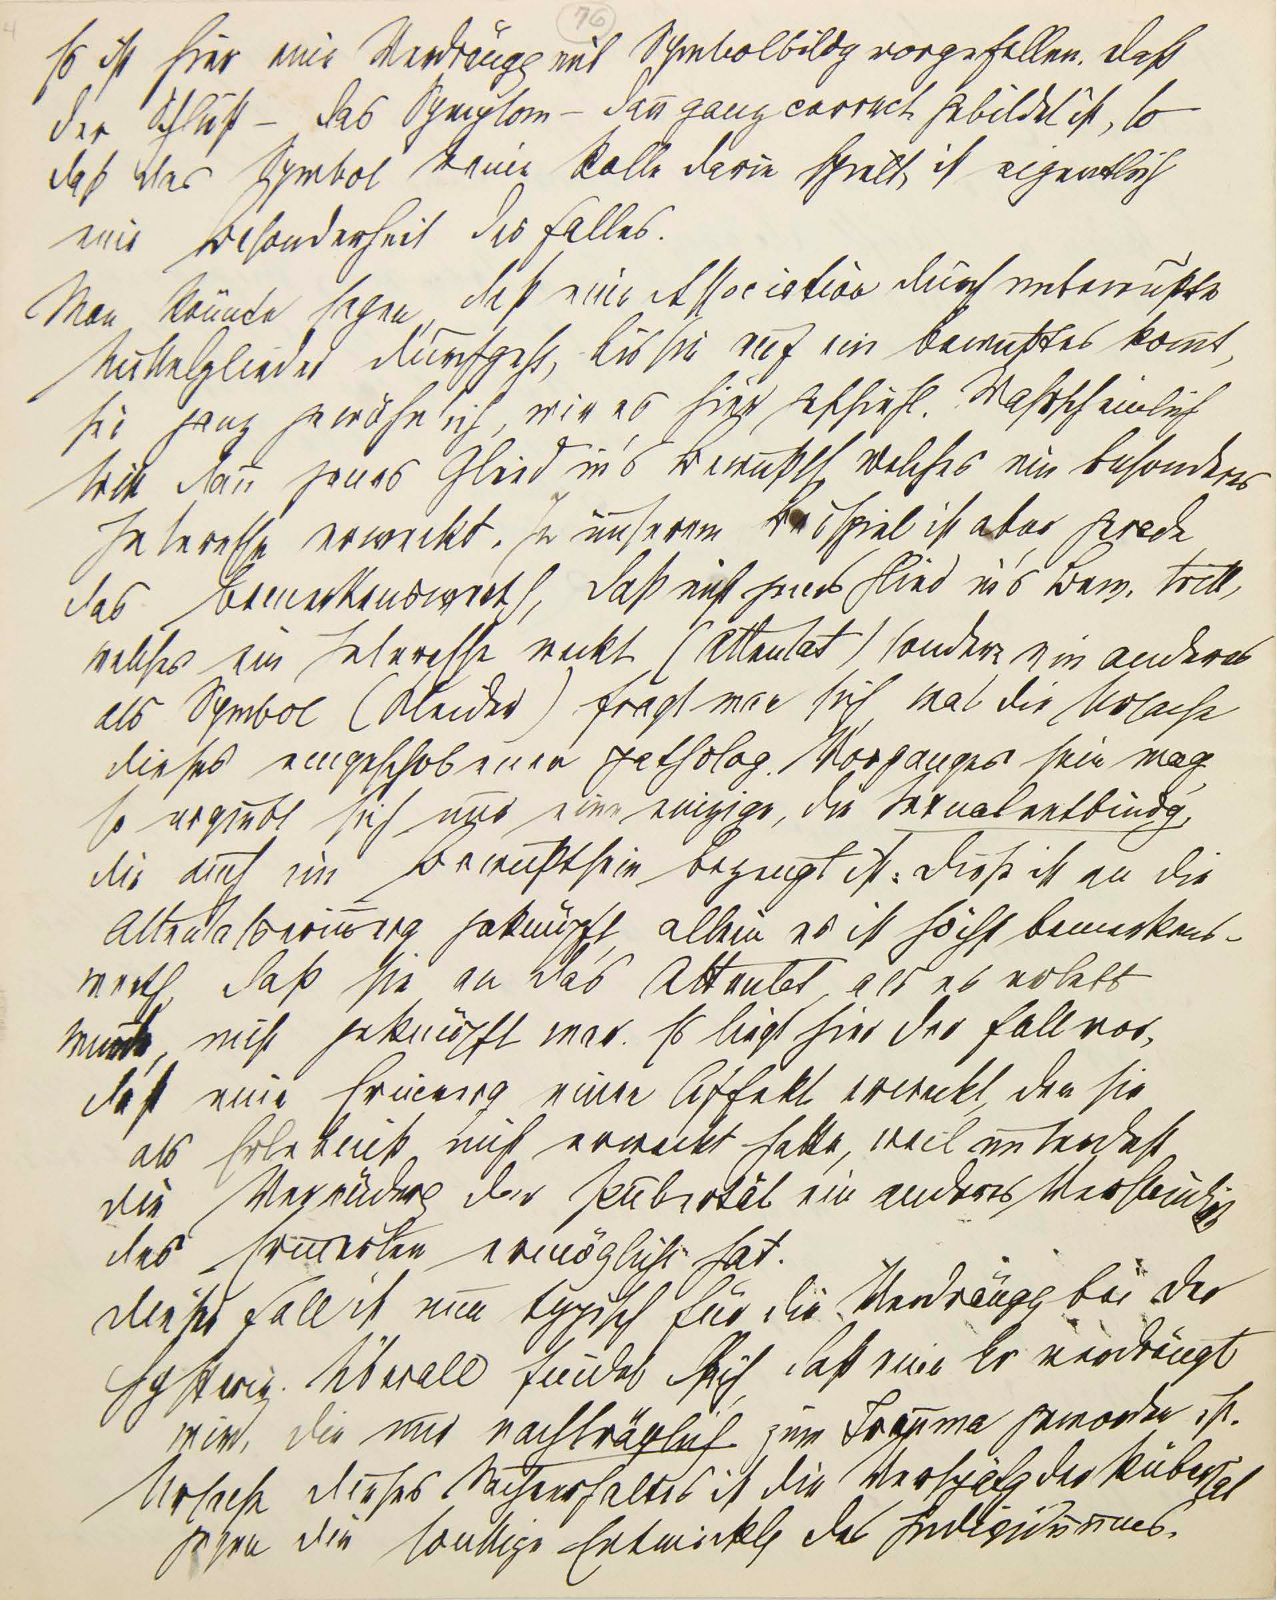 76
Es ist hier eine Verdrängg mit Symbolbildg vorgefallen. Daß
der Schluß – das Symptom – dann ganz correct gebildet ist, so
daß das Symbol keine Rolle darin spielt, ist eigentlich
eine Besonderheit des Falles.
Man könnte sagen, daß eine Association durch unbewußte
Mittelglieder durchgeht, bis sie auf ein bewußtes komt,
sei ganz gewöhnlich, wie es hier geschieht. Wahrscheinlich
tritt dann jenes Glied in's Bewußts, welches ein besonderes
Interesse erweckt. In unserem Beispiel ist aber gerade
das Bemerkenswerth, daß nicht jenes Glied in's Bew. tritt,
welches ein Interesse weckt (Attentat) sondern ein anderes
als Symbol (Kleider) fragt man sich, was die Ursache
dieses eingeschobenen patholog. Vorganges sein mag
so ergiebt sich nur eine einzige, die Sexualentbindg,
die auch im Bewußtsein bezeugt ist. Diese ist an die
Attentatserinnerg geknüpft, allein es ist höchst bemerkens-
werth, daß sie an das Attentat, als es erlebt
wurde, nicht geknüpft war. Es liegt hier der Fall vor,
daß eine Erinnerg einen Affekt erweckt, den sie
als Erlebniß nicht erweckt hatte, weil unterdeß
die Veränderg der Pubertät ein anderes Verständniß
des Erinnerten ermöglicht hat.
Dieser Fall ist nun typisch für die Verdrängg bei der
Hysterie. Überall findet sich, daß eine Er verdrängt
wird, die nur nachträglich zum Trauma geworden ist.
Ursache dieses Sachverhaltes ist die Verspätg der Pubertät
gegen die sonstige Entwicklg des Individuums.